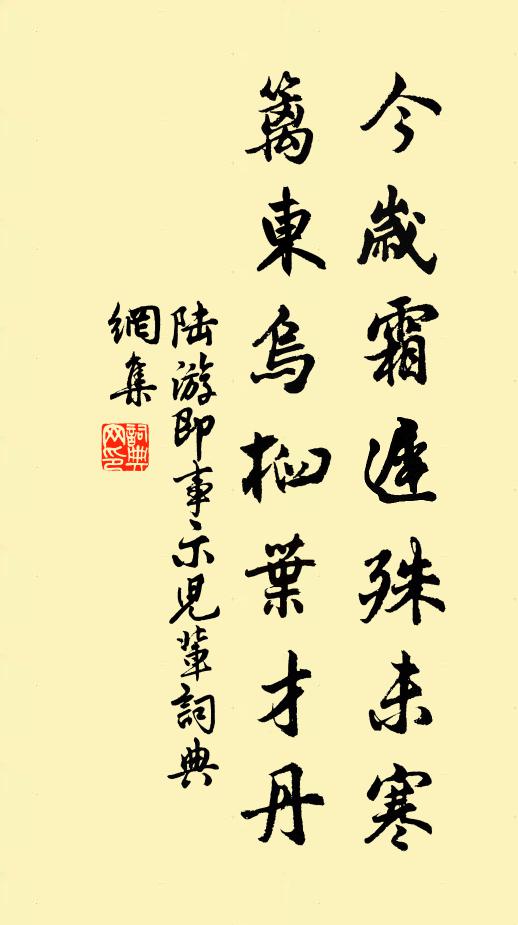 今歲霜遲殊未寒
籬東烏桕葉才丹
陸游即事示兒輩詞典
網集
詞典
网印